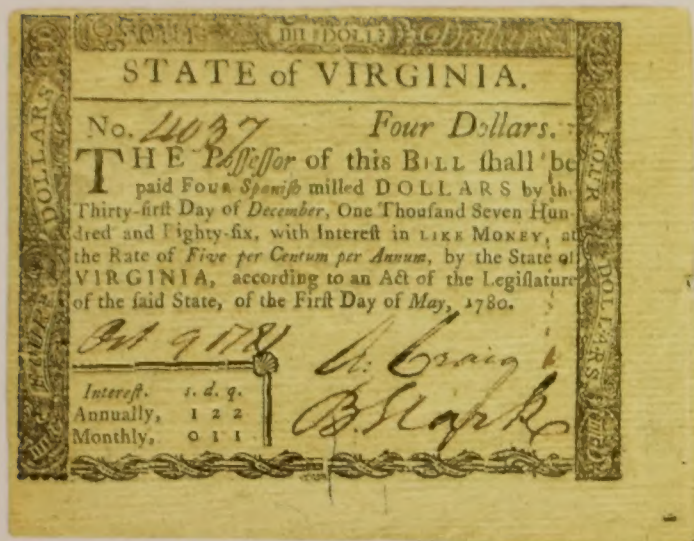 IIII DOLL?
STATE of VIRGINIA.
No. 4037 Four Dollars.
THE Poſſeſſor of this BILL ſhall be
paid FOUR Spaniſh milled DOLLARS by th
Thirty-firſt Day of December, One Thouſand Seven Hun-
dred and Eighty-ſix, with Intereſt in LIKE MONEY, at
the Rate of Five per Centum per Annum, by the State of
VIRGINIA, according to an Act of the Legiſlature
of the ſaid State, of the Firſt Day of May, 1780.
Oct 9 1781
A. Craig
B Stark
Intereſt. s. d. q.
Annually, 1 2 2
Monthly, 0 1 1
FOUR DOLLARS
FOUR DOLLARS